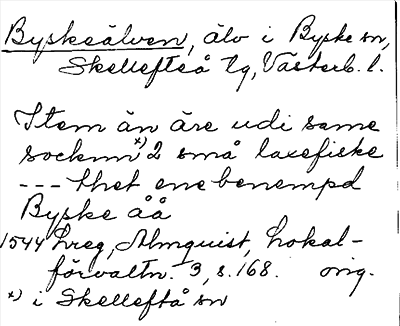 Byskeälven, älv i Byske sn,
Skellefteå tg, Västerb. l.
Item än äre udi same
socknn *) 2 små laxefiske
--- thet ene benempd
Byske åå
1544 hreg, Almquist, Lokal-
förvaltn. 3, s. 168. orig.
*) i Skellefteå sn